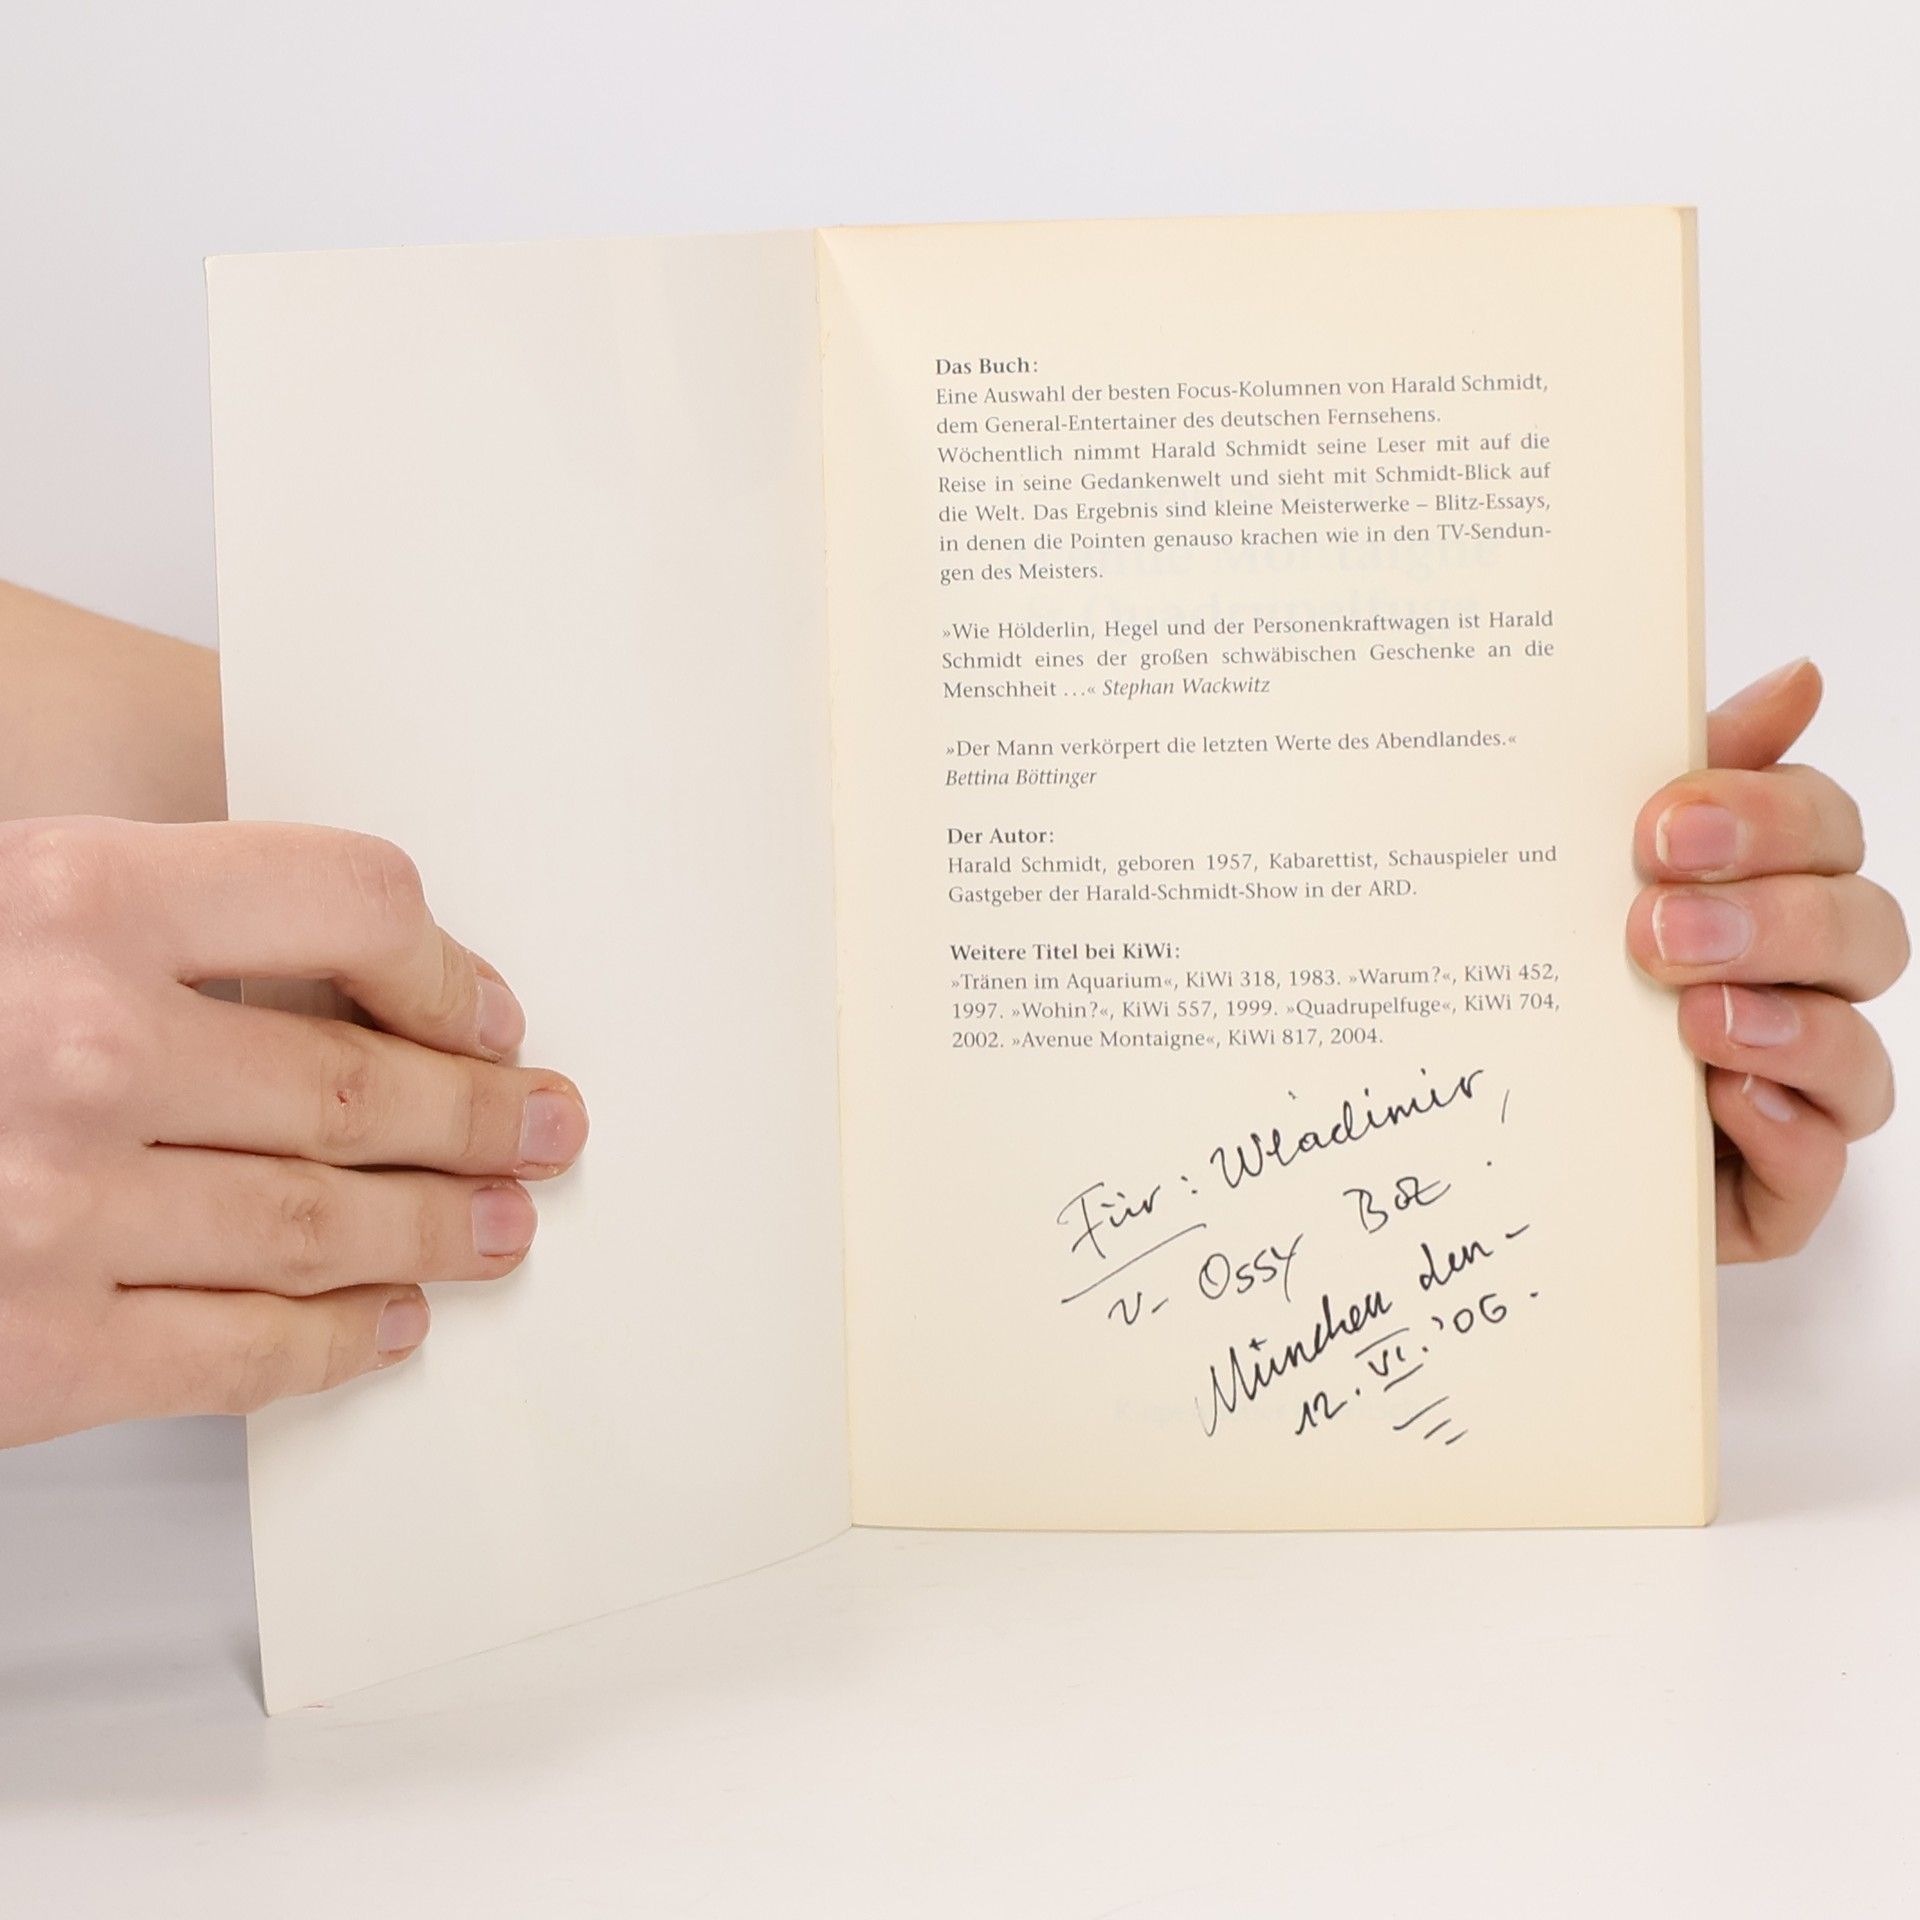 Das Buch:
Eine Auswahl der besten Focus-Kolumnen von Harald Schmidt,
dem General-Entertainer des deutschen Fernsehens.
Wöchentlich nimmt Harald Schmidt seine Leser mit auf die
Reise in seine Gedankenwelt und sieht mit Schmidt-Blick auf
die Welt. Das Ergebnis sind kleine Meisterwerke – Blitz-Essays,
in denen die Pointen genauso krachen wie in den TV-Sendun-
gen des Meisters.
»Wie Hölderlin, Hegel und der Personenkraftwagen ist Harald
Schmidt eines der großen schwäbischen Geschenke an die
Menschheit …« Stephan Wackwitz
»Der Mann verkörpert die letzten Werte des Abendlandes.«
Bettina Böttinger
Der Autor:
Harald Schmidt, geboren 1957, Kabarettist, Schauspieler und
Gastgeber der Harald-Schmidt-Show in der ARD.
Weitere Titel bei KiWi:
»Tränen im Aquarium«, KiWi 318, 1983. »Warum?«, KiWi 452,
1997. »Wohin?«, KiWi 557, 1999. »Quadrupelfuge«, KiWi 704,
2002. »Avenue Montaigne«, KiWi 817, 2004.
Für: Wladimir,
v- Ossy
München den -
12. VI. '06.